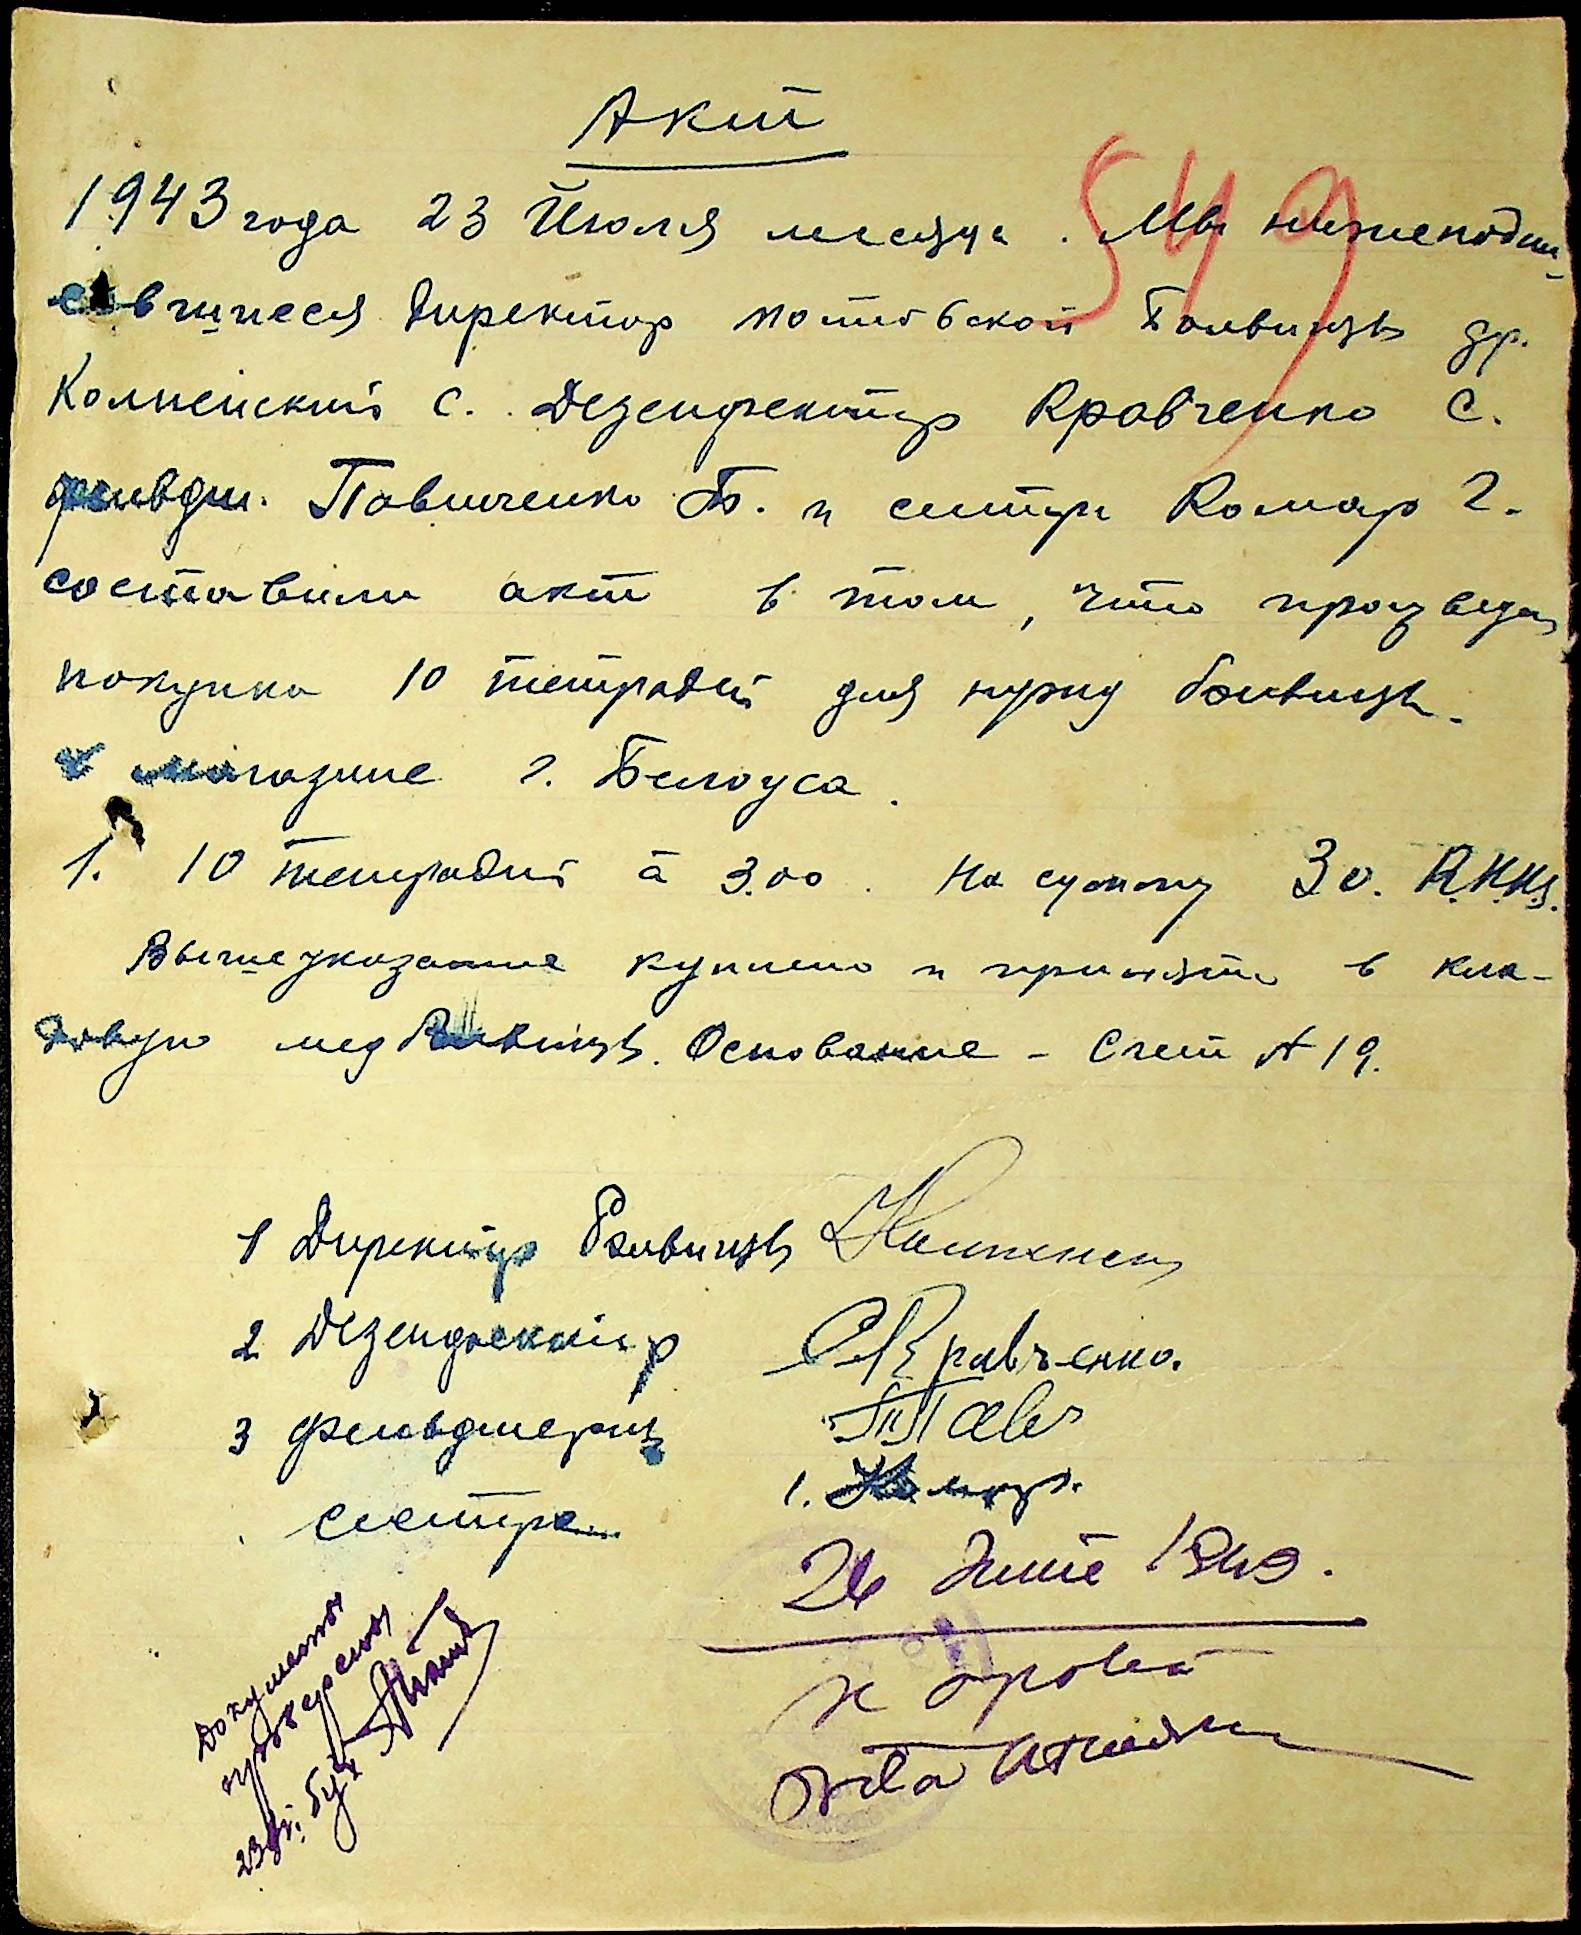 Акт
549
1943 года 23 Июля месяца. Мы нижеподпи-
савшиеся Директор Больницы др.
Колпенский С. Дезенфектор Кравченко С.
фельдш. Павличенко Б. и сестра Комар Г.
составили акт в том, что произведен
покупка 10 тетрадей для нужд больницы.
в магазине г. Белоуса.
1. 10 тетрадей à 3.00. На сумму 30. R.K.K.S.
Вышеуказанное куплено и принято в кла-
довую мед Больницы. Основание - Счет № 19.
1 Директор Больницы
2 Дезенфектор С Кравченко.
3 фельдшериц Павл
сестра 1. Комар.
26 1943.
Документы
проверены
бух